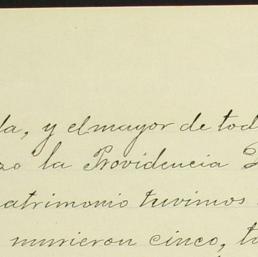 la, y el mayor de tod
zo la Providencia
atrimonio tuvimos
murieron cinco, t